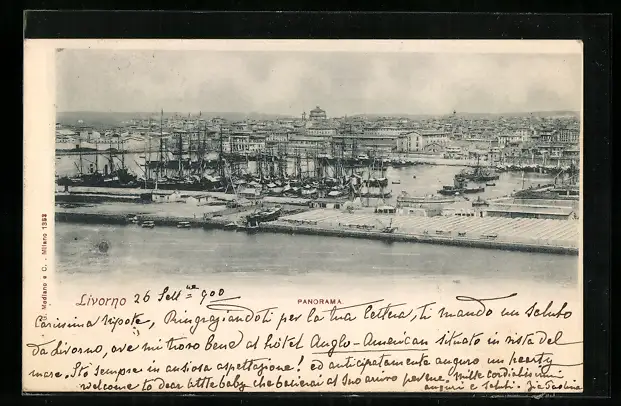 G. Modiano e C. - Milano 1393
Livorno 26 Sett.re 900
PANORAMA.
Carissima nipote, Ringraziandoti per la tua lettera, ti mando un saluto
da Livorno, ove mi trovo bene al hôtel Anglo-American situato in vista del
mare. Sto sempre in ansiosa aspettazione! ed anticipatamente auguro un hearty
welcome to dear little baby che bacierai al suo arrivo per me. Mille cordialissimi
auguri e saluti. Zia